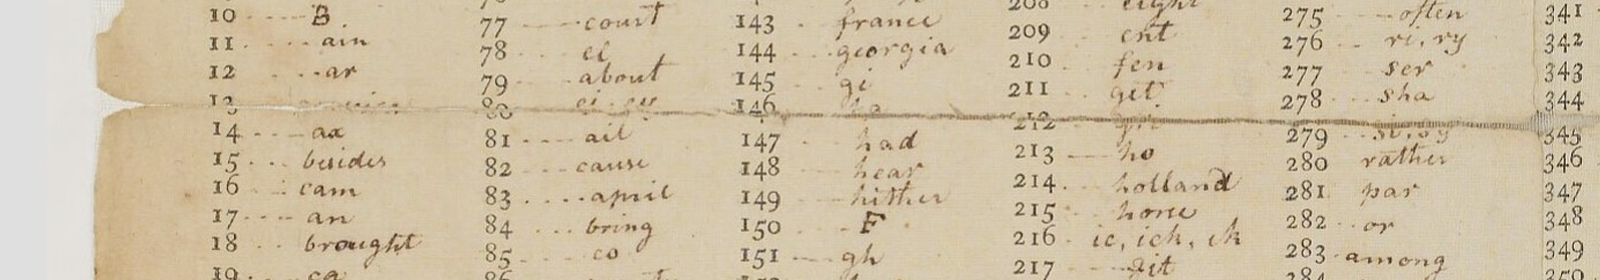 10 B
11 ain
12 ar
13
14 ax
15 besides
16 cam
17 an
18 brought
19 ca
77 court
78 el
79 about
80 ei. ey
81 ail
82 cause
83 april
84 bring
85 co
86
143 france
144 georgia
145 gi
146 ha
147 had
148 hear
149 hither
150 F
151 gh
208 eight
209 ent
210 fen
211 get
212
213 ho
214 holland
215 horse
216 ic, ich, ik
217
275 often
276 ri, ry
277 ser
278 sha
279 si, sy
280 rather
281 par
282 or
283 among
284
341
342
343
344
345
346
347
348
349
350